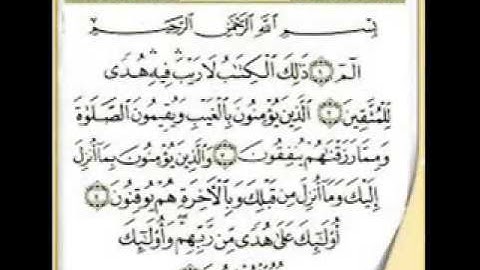 بِسْمِ اللَّهِ الرَّحْمَٰنِ الرَّحِيمِ
الم ۝١ ذَٰلِكَ الْكِتَابُ لَا رَيْبَ ۛ فِيهِ ۛ هُدًى
لِّلْمُتَّقِينَ ۝٢ الَّذِينَ يُؤْمِنُونَ بِالْغَيْبِ وَيُقِيمُونَ الصَّلَاةَ
وَمِمَّا رَزَقْنَاهُمْ يُنفِقُونَ ۝٣ وَالَّذِينَ يُؤْمِنُونَ بِمَا أُنزِلَ
إِلَيْكَ وَمَا أُنزِلَ مِن قَبْلِكَ وَبِالْآخِرَةِ هُمْ يُوقِنُونَ ۝٤
أُولَٰئِكَ عَلَىٰ هُدًى مِّن رَّبِّهِمْ وَأُولَٰئِكَ